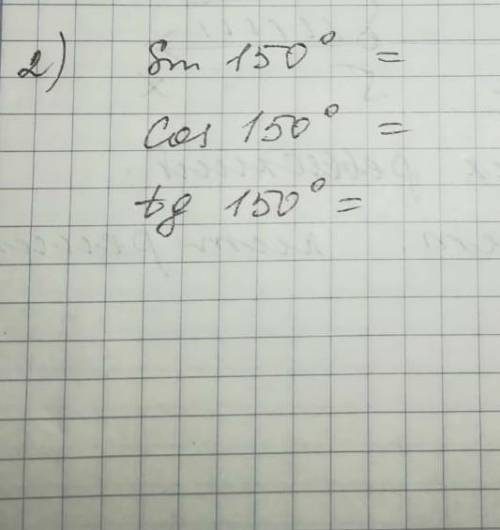 2) Sin 150° =
Cos 150° =
tg 150° =